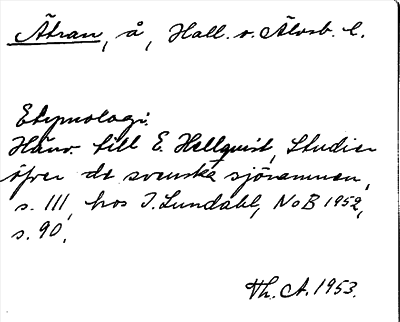 Ätran, å, Hall. o. Älvsb. l.
Etymologi.
Hänv. till E. Hellquist, Studier
öfver de svenska sjönamnen,
s. 111, hos I. Lundahl, NoB 1952,
s. 90.
Th. A. 1953.